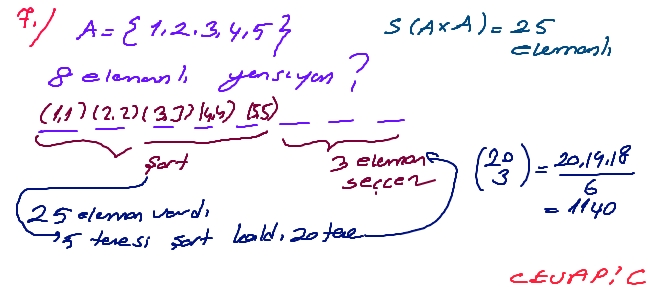 7.) A = { 1,2,3,4,5 } S(AxA) = 25
elemanlı
8 elemanlı yansıyan ?
(1,1) (2,2) (3,3) (4,4) (5,5) _ _ _
şart 3 eleman
seççez
(20 3) = 20.19.18 / 6
= 1140
25 eleman vardı
5 tanesi şart kaldı 20 tane
CEVAP: C